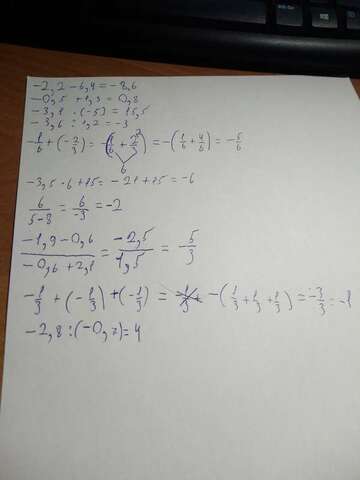 -2,2 - 6,4 = -8,6
-0,5 + 1,3 = 0,8
-3,1 · (-5) = 15,5
-3,6 : 1,2 = -3
-1/6 + (-2/3) = -(1/6 + 2/3) = -(1/6 + 4/6) = -5/6
-3,5 · 6 + 15 = -21 + 15 = -6
6/(5-8) = 6/-3 = -2
(-1,9 - 0,6)/(-0,6 + 2,1) = -2,5/1,5 = -5/3
-1/3 + (-1/3) + (-1/3) = -(1/3 + 1/3 + 1/3) = -3/3 = -1
-2,8 : (-0,7) = 4